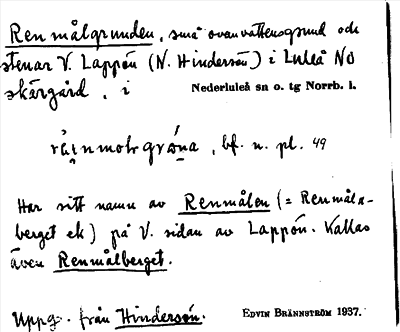 Renmålgrunden, små ovanvattensgrund och
stenar V. Lappön (N. Hindersön) i Luleå NO
skärgård, i Nederluleå sn o. tg Norrb. l.
bf. n. pl. 49
Har sitt namn av Renmålen (= Renmåls-
berget ek) på V. sidan av Lappön. Kallas
även Renmålberget.
Uppg. från Hindersön. EDVIN BRÄNNSTRÖM 1937.